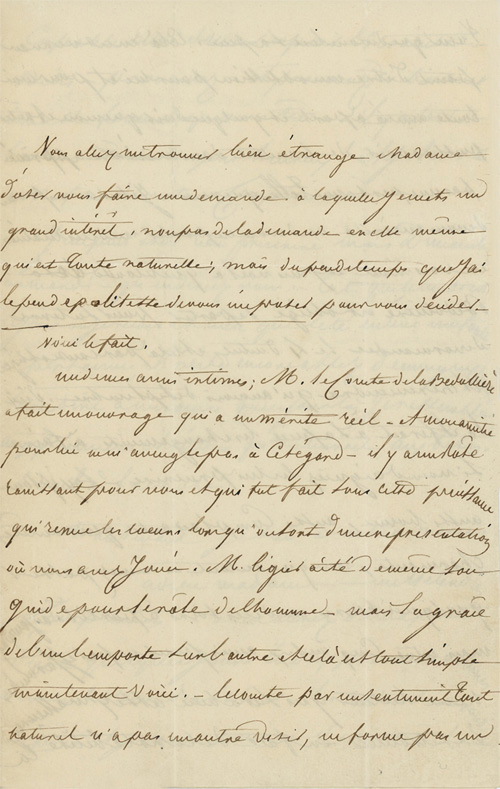 Vous allez me trouver bien étrange Madame
d'oser vous faire une demande à laquelle je mets un
grand intérêt, non pas de la demande en elle même
qui est toute naturelle; mais du peu de temps que j'ai
le peu de politesse de vous imposer pour vous décider -
Voici le fait.
un de mes amis intimes; M. le Comte de la Bedollière
a fait un ouvrage qui a un mérite réel - et mon amitié
pour lui ne m'aveugle pas à cet égard - il y a un rôle
ravissant pour vous et qui fut fait sous cette puissance
qui remue les coeurs lorsqu'on sort d'une représentation
où vous avez joué. M. ligier a été de même son
guide pour le rôle de l'homme - mais la grâce
de l'un l'emporte sur l'autre et cela est tout simple
maintenant voici. - le comte par un sentiment tout
naturel n'a pas un autre désir, ne forme pas un